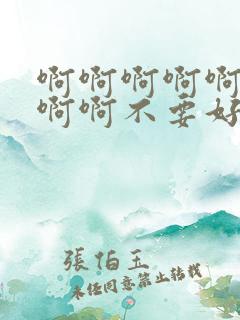 啊啊啊啊啊
啊啊不要好
張伯玉
未經同意禁止轉載